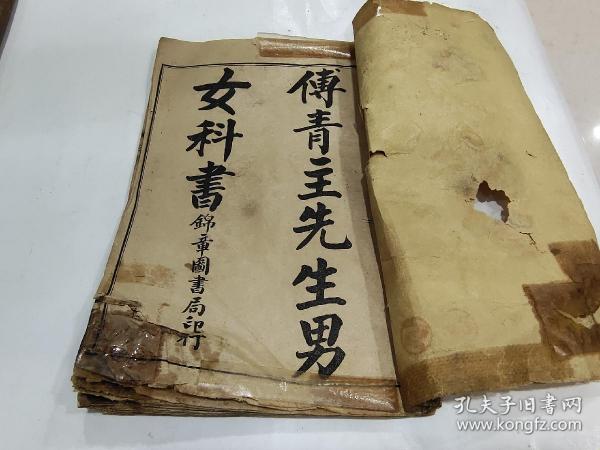 傅青主先生男
女科書
錦章圖書局印行
孔夫子旧书网
www.kongfz.com